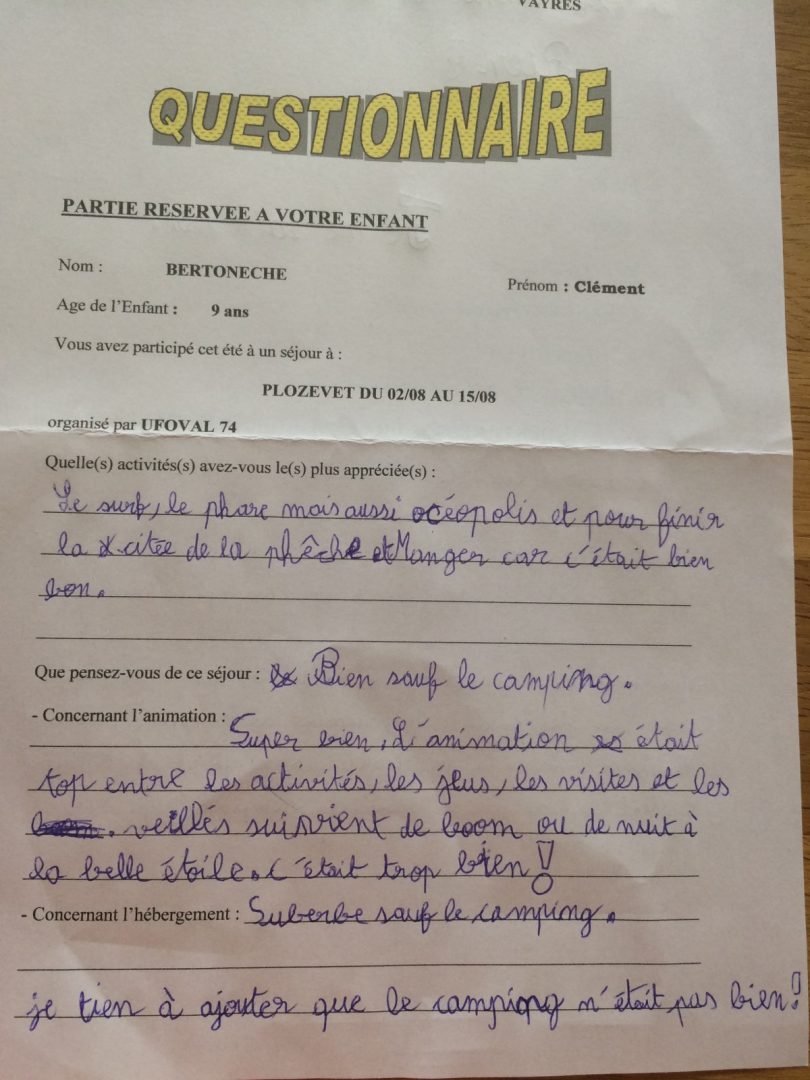 VAYRES
QUESTIONNAIRE
PARTIE RESERVEE A VOTRE ENFANT
Nom : BERTONECHE
Prénom : Clément
Age de l'Enfant : 9 ans
Vous avez participé cet été à un séjour à :
PLOZEVET DU 02/08 AU 15/08
organisé par UFOVAL 74
Quelle(s) activités(s) avez-vous le(s) plus appréciée(s) :
Le surf, le phare mais aussi océopolis et pour finir
la citée de la phêche et Manger car c'était bien
bon.
Que pensez-vous de ce séjour : Bien sauf le camping.
- Concernant l'animation :
Super bien, L'animation était
top entre les activités, les jeus, les visites et les
veillés suivient de boom ou de nuit à
la belle étoile. C'était trop bien !
- Concernant l'hébergement : Suberbe sauf le camping.
je tien à ajouter que le camping n'était pas bien !